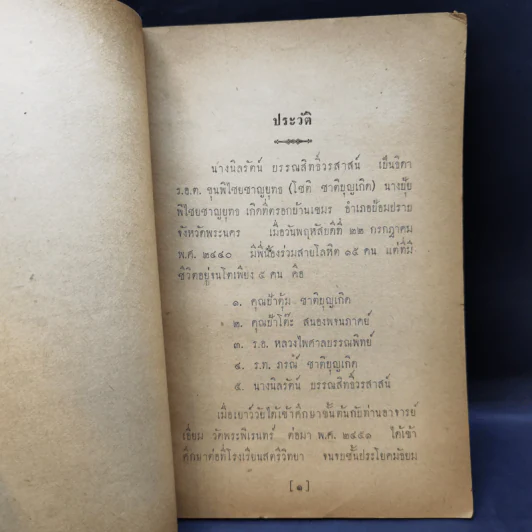 ประวัติ
นางนิลรัตน์ บรรณสิทธิ์วรสาสน์ เป็นธิดา
ร.อ.ต. ขุนพิไชยชาญยุทธ (โชติ ชาติยุญเกิด) นางยุ้ย
พิไชยชาญยุทธ เกิดที่ตรอกบ้านเขมร อำเภอป้อมปราบ
จังหวัดพระนคร เมื่อวันพฤหัสบดีที่ ๒๒ กรกฎาคม
พ.ศ. ๒๔๔๐ มีพี่น้องร่วมสายโลหิต ๑๕ คน แต่ที่มี
ชีวิตอยู่จนโตเพียง ๕ คน คือ
๑. คุณป้าคุ้ม ชาติยุญเกิด
๒. คุณป้าโต๊ะ สนองพจนภาคย์
๓. ร.อ. หลวงไพศาลบรรณพิทย์
๔. ร.ท. ภรณ์ ชาติยุญเกิด
๕. นางนิลรัตน์ บรรณสิทธิ์วรสาสน์
เมื่อเยาว์วัยได้เข้าศึกษาชั้นต้นกับท่านอาจารย์
เยี่ยม วัดพระพิเรนทร์ ต่อมา พ.ศ. ๒๔๕๑ ได้เข้า
ศึกษาต่อที่โรงเรียนสตรีวิทยา จนจบชั้นประโยคมัธยม
[ ๑ ]